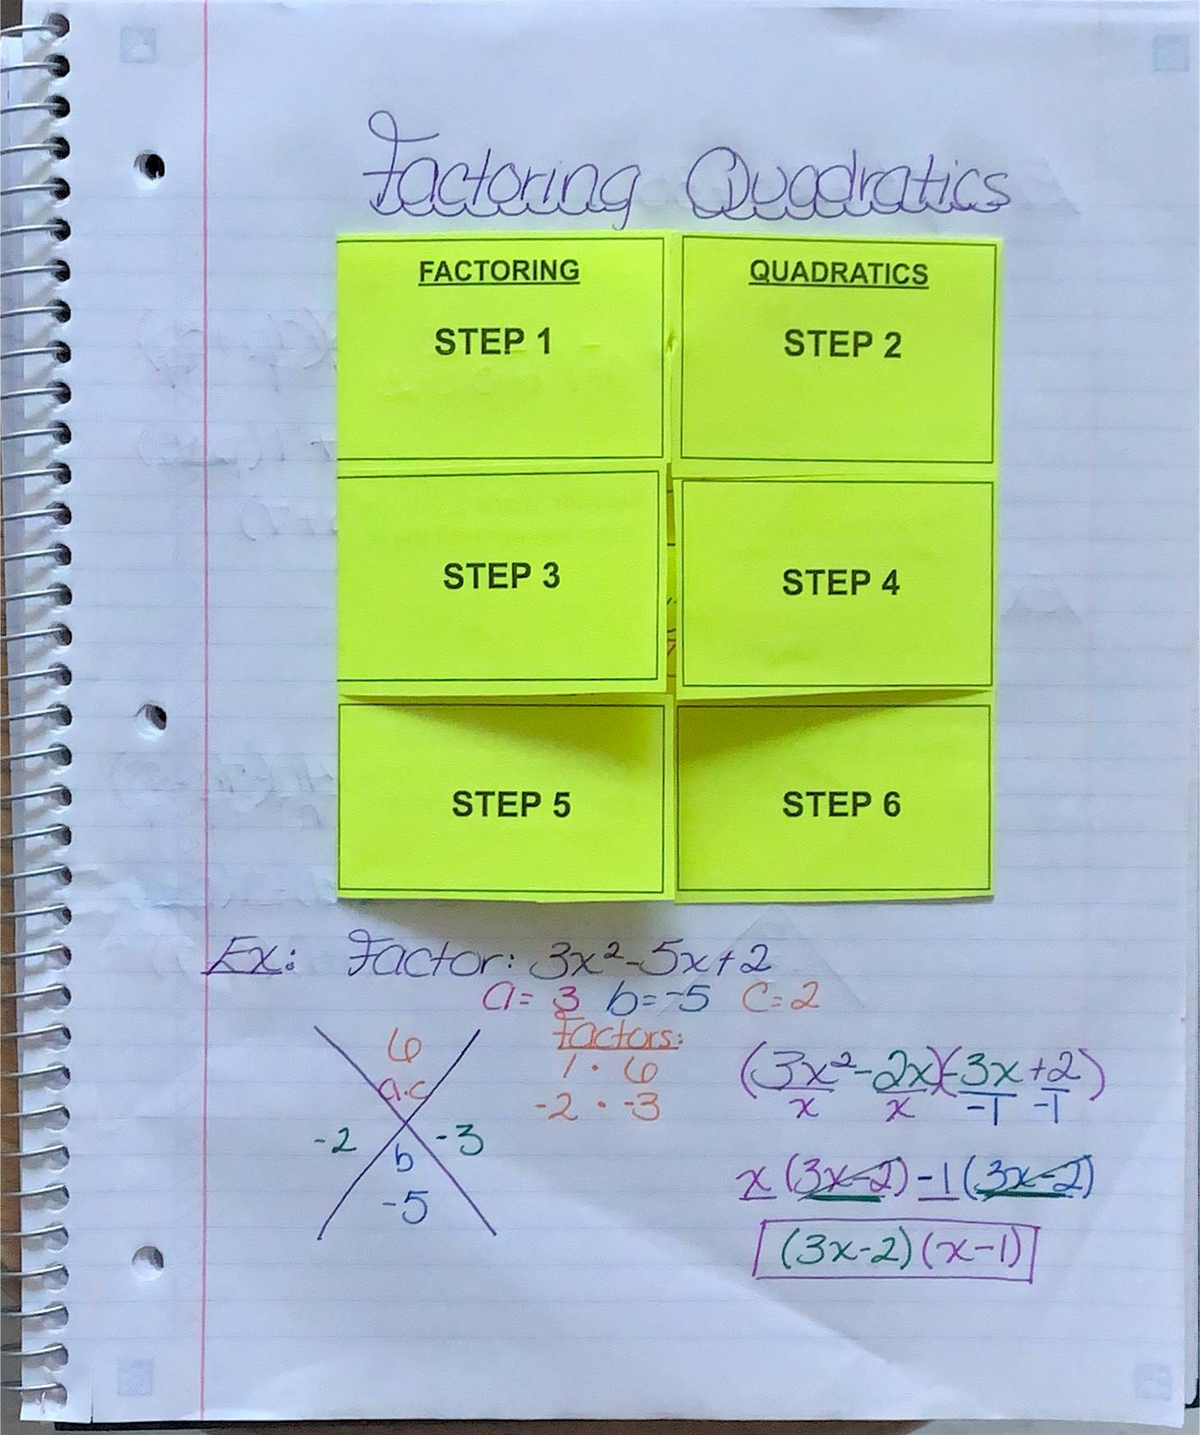 Factoring Quadratics
FACTORING
STEP 1
QUADRATICS
STEP 2
STEP 3
STEP 4
STEP 5
STEP 6
Ex: Factor: 3x²-5x+2
a=3 b=-5 c=2
6
a.c
-2 -3
b
-5
Factors:
1 · 6
-2 · -3
(3x²-2x)(-3x+2)
x x -1 -1
x(3x-2)-1(3x-2)
(3x-2)(x-1)